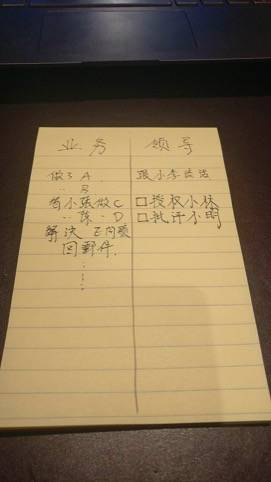 业务
做了 A
〃 B
帮小张做C
〃陈〃D
解决 E问题
回邮件.
......
领导
跟小李谈话
□授权小林
□批评小明